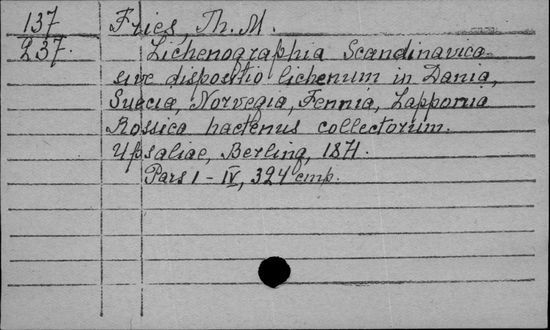 137 Fries, Th. M.
237. Lichenographia Scandinavica
sive dispositio lichenum in Dania,
Suecia, Norvegia, Fennia, Lapponia
Rossica hactenus collectorum.
Upsaliae, Berling, 1871.
Pars I - IV, 324 стр.